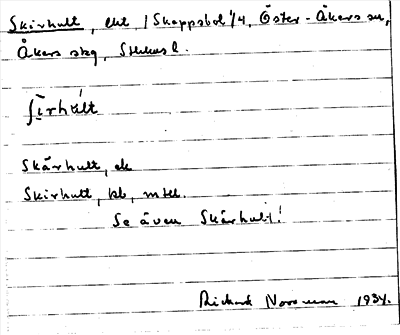 Skirhult, lht, i Skeppsbol 1/4, Öster-Åkers sn,
Åkers skg, Sthlms l.
ʃi̱rhùlt
Skärhult, ek
Skirhult, kb, mtl.
Se även Skärhult!
Rickard Norrman 1934.